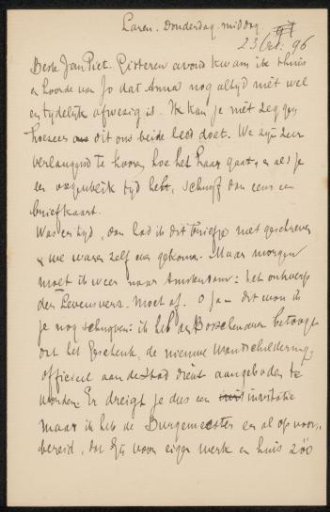 Laren. Donderdag middag
23 Oct. 96
Beste Jan Piet. Gisteren avond kwam ik thuis
en hoorde van Jo dat Anna nog altijd niet wel
en tijdelijk afwezig is. Ik kan je niet zeggen
hoezeer ons dit ons beide leed doet. We zijn zeer
verlangend te hooren, hoe het haar gaat, en als je
een oogenblik tijd hebt, schrijf dan eens een
briefkaart.
Was er tijd, dan had ik dit briefje niet geschreven
& we waren zelf eens gekomen. Maar morgen
moet ik weer naar Amsterdam: het ontwerp
der Levensverz. Moet af. O ja – dit wou ik
je nog schrijven: ik heb
dat het Geschenk, de nieuwe wandschildering,
officieel aan de stad dient aangeboden te
worden. Er dreigt je dus een invitatie
maar ik heb de Burgemeester er al op voor-
bereid, dat Gij voor eigen werk en huis zóó